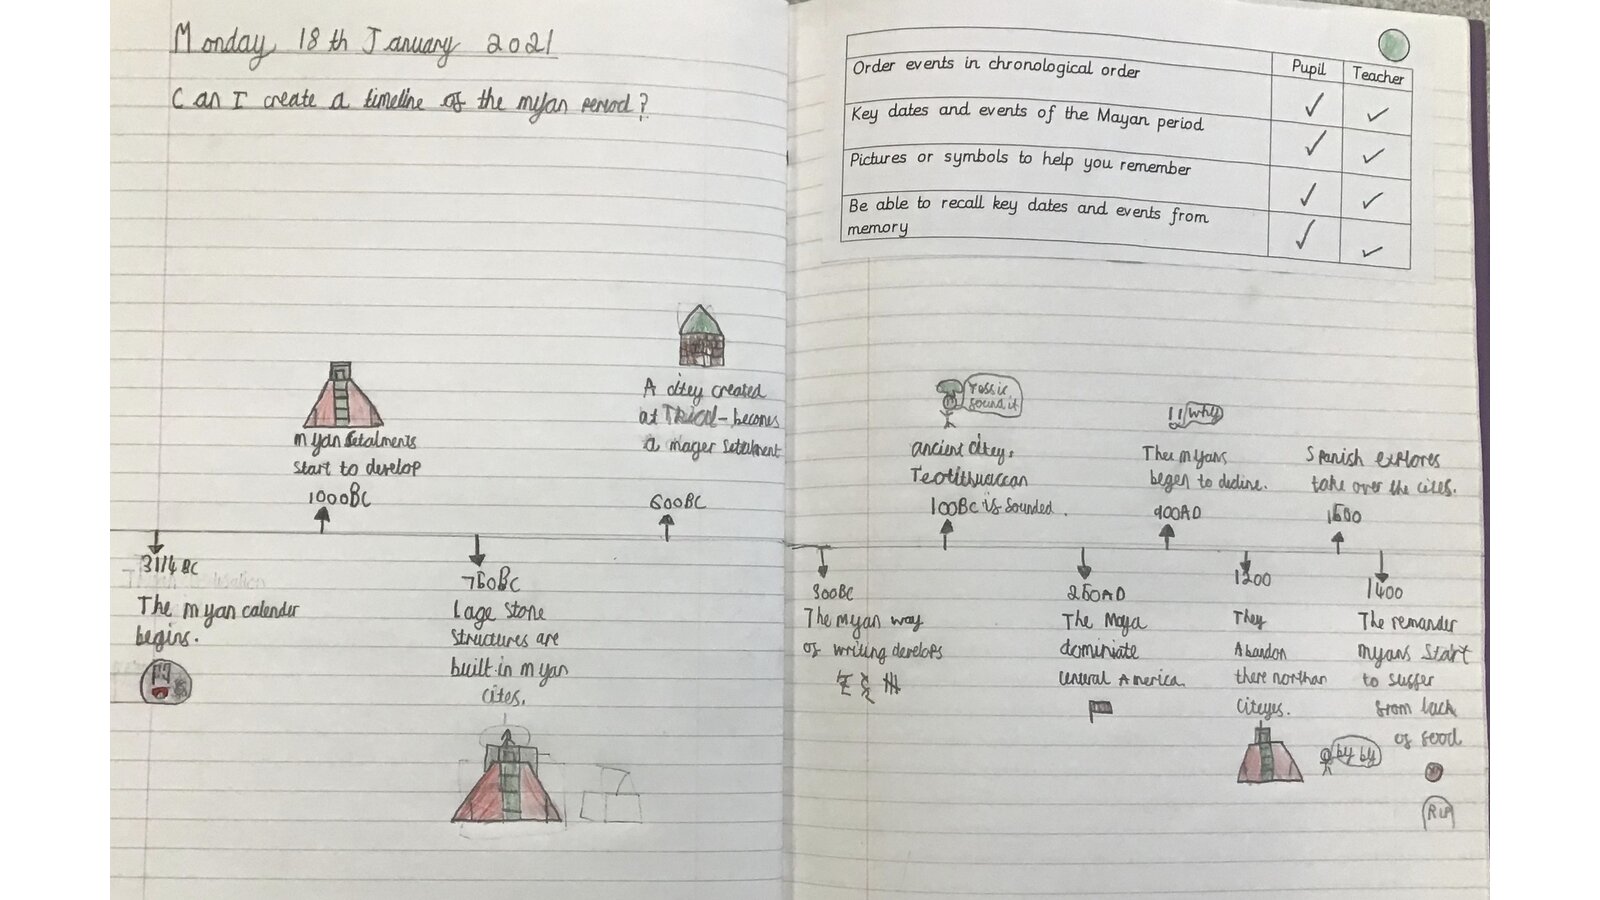 Monday 18th January 2021
Can I create a timeline of the myan period?
myan setalments
start to develop
1000BC
A citey created
at - becomes
a mager settalment
600BC
3114 BC
The myan calender
begins.
750BC
Lage stone
structures are
built in myan
cites.
Pupil Teacher
Order events in chronological order
Key dates and events of the Mayan period
Pictures or symbols to help you remember
Be able to recall key dates and events from
memory
found it
ancient citey,
100BC is founded.
why
The myans
began to decline.
900AD
Spanish explores
take over the cites.
300BC
The myan way
of writing develops
250AD
The Maya
dominiate
central America.
1200
They
Abandon
there northan
citeyes.
by by
1400
The remander
myans start
to suffer
from lack
of food
RIP